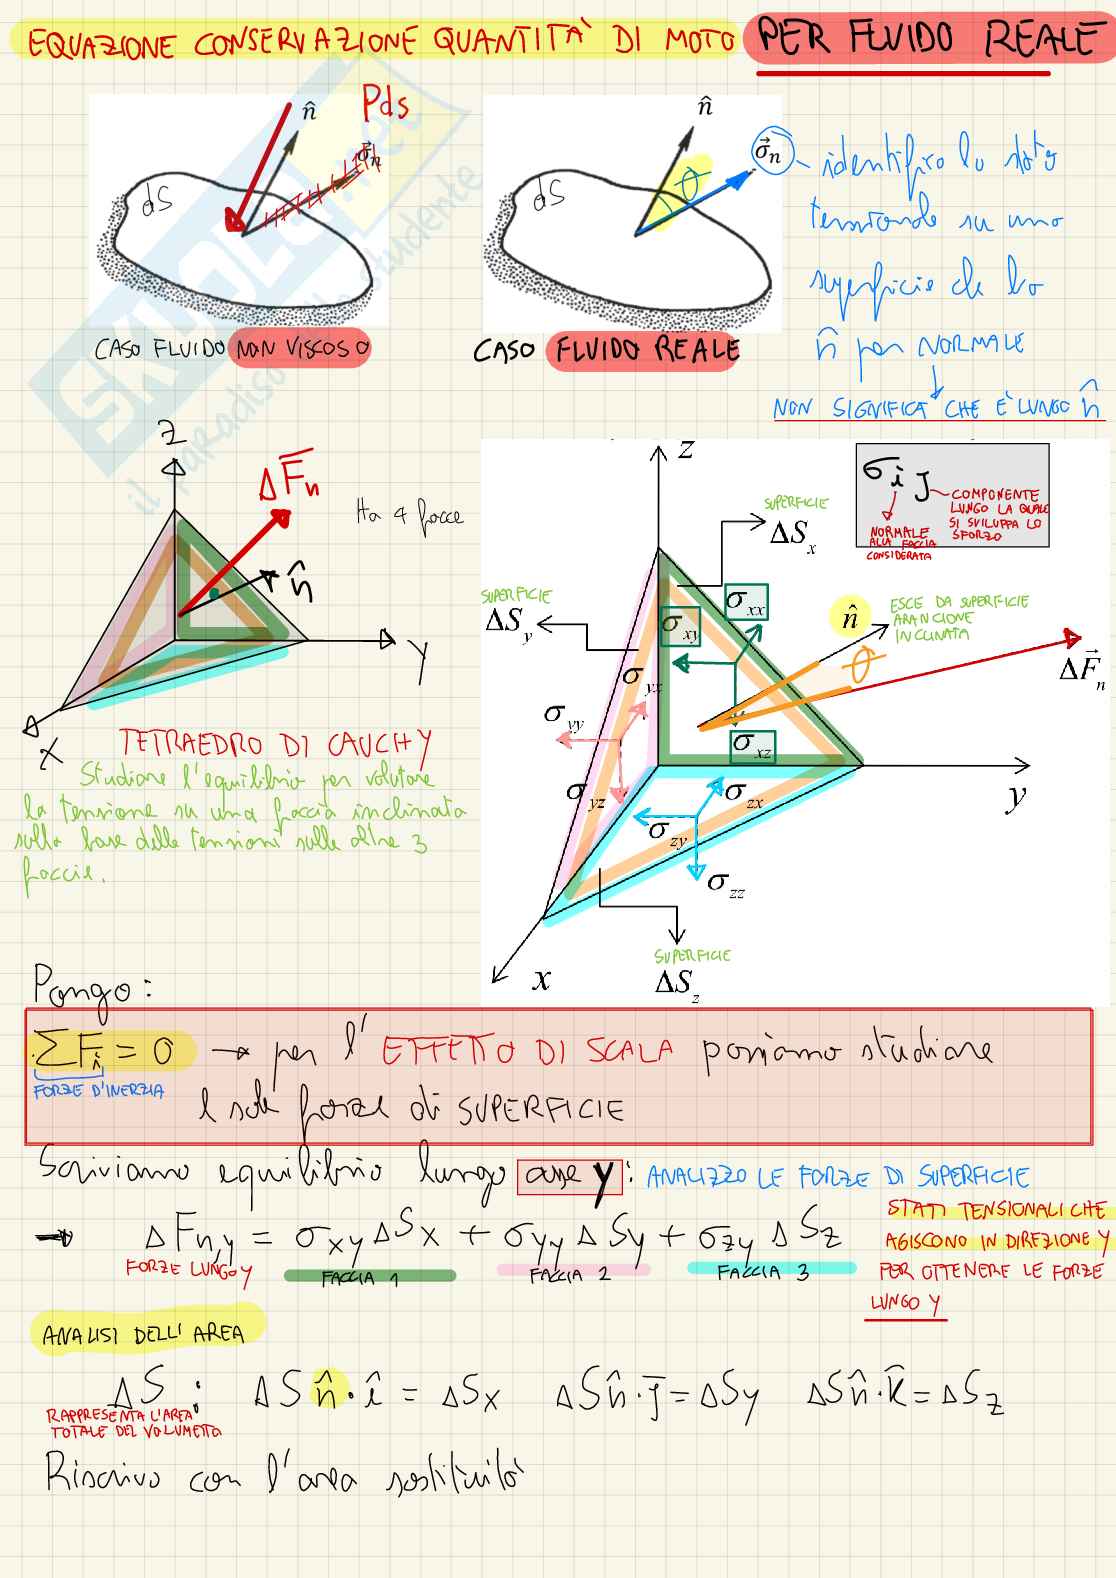 EQUAZIONE CONSERVAZIONE QUANTITÀ DI MOTO PER FLUIDO REALE
n̂
Pds
σ⃗n
dS
CASO FLUIDO NON VISCOSO
n̂
σ⃗n
θ
dS
CASO FLUIDO REALE
identifico lo stato
tensionale su una
superficie che ha
n̂ per NORMALE
NON SIGNIFICA CHE È LUNGO n̂
SKUOLA.net
il paradiso dello studente
Z
ΔFn
n̂
Y
X
Ha 4 facce
TETRAEDRO DI CAUCHY
Studiare l'equilibrio per valutare
la tensione su una faccia inclinata
sulla base delle tensioni sulle altre 3
faccie.
z
σij
NORMALE
ALLA FACCIA
CONSIDERATA
COMPONENTE
LUNGO LA QUALE
SI SVILUPPA LO
SFORZO
SUPERFICIE
ΔSx
SUPERFICIE
ΔSy
σxx
σxy
σxz
n̂
ESCE DA SUPERFICIE
ARANCIONE
INCLINATA
θ
ΔF⃗n
σyx
σyy
σyz
σzx
σzy
σzz
y
x
SUPERFICIE
ΔSz
Pongo:
ΣFi = 0 → per l' EFFETTO DI SCALA possiamo studiare
FORZE D'INERZIA
le sole forze di SUPERFICIE
Scriviamo equilibrio lungo asse y: ANALIZZO LE FORZE DI SUPERFICIE
→ ΔFn,y = σxy ΔSx + σyy ΔSy + σzy ΔSz
FORZE LUNGO Y
FACCIA 1
FACCIA 2
FACCIA 3
STATI TENSIONALI CHE
AGISCONO IN DIREZIONE Y
PER OTTENERE LE FORZE
LUNGO Y
ANALISI DELL'AREA
ΔS: ΔS n̂·î = ΔSx ΔS n̂·j̄ = ΔSy ΔS n̂·k̄ = ΔSz
RAPPRESENTA L'AREA
TOTALE DEL VOLUMETTO
Riscrivo con l'area sostituita